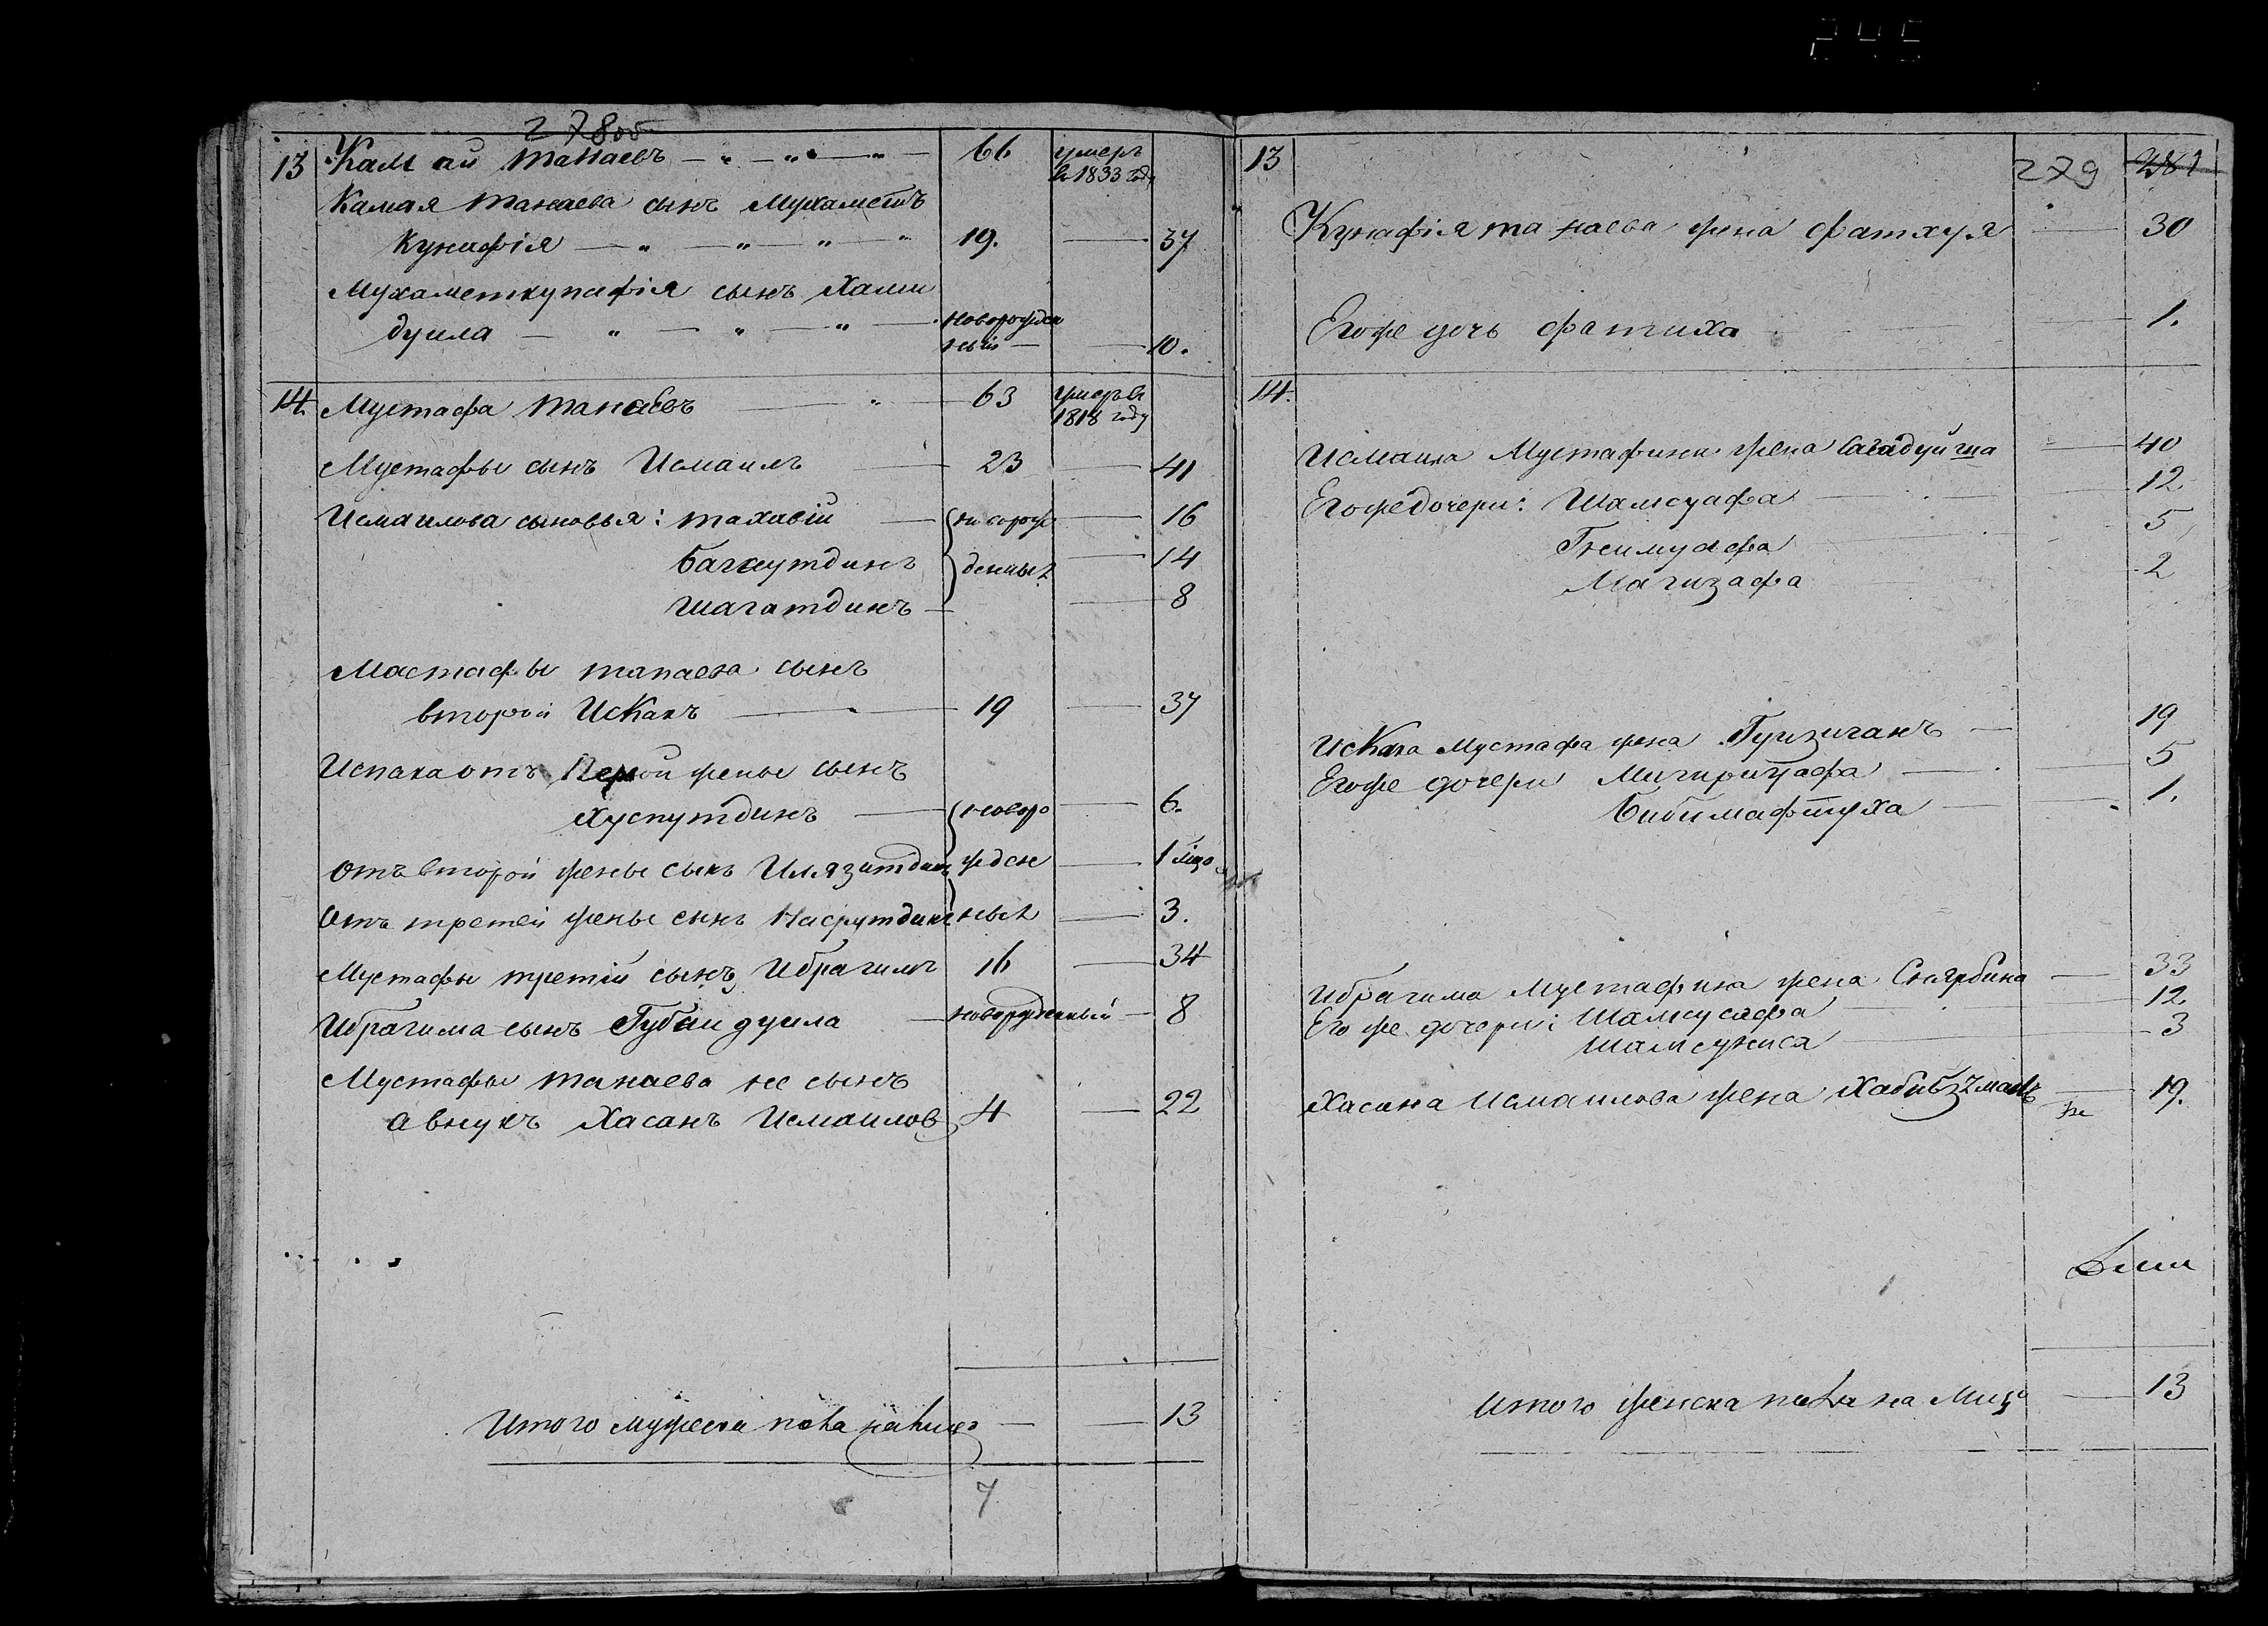 278об
13 Камай Танаевъ — „ — „ — „ — 66 умеръ
в 1833 году
Камая Танаева сынъ Мухаметъ
Кунафія — „ — „ — „ — „ 19. — 37
Мухаметкунафія сынъ Хами
дулла — „ — „ — „ — новорожден
ный — — 10.
14. Мустафа Танаевъ — „ — 63 умеръ в
1818 году
Мустафы сынъ Исмаилъ — 23 — 41
Исмаилова сыновья: Тахавій — новорож — 16
Багаутдинъ денных — 14
Шагатдинъ — — 8
Мастафы танаева сынъ
второй Исхакъ — 19 — 37
Исхака отъ Первой жены сынъ
Хуснутдинъ — новоро — 6.
Отъ второй жены сынъ Илязитдинъ жден — 1
Отъ третей жены сынъ Насрутдинъ ных — 3.
Мустафы третій сынъ Ибрагимъ 16 — 34
Ибрагима сынъ Губайдулла — новорожденный — 8
Мустафы танаева не сынъ
а внукъ Хасанъ Исмаилов 4 — 22
Итого мужеска пола налицо — — 13
7
13 279 281
Кунафія танаева жена Фатхуя — 30
Егоже дочь Фатиха — 1.
14.
Исмаила Мустафина жена Сагадуй — 40
Егоже дочери: Шамсуафа — 12
5
Магизафа 2
Исхака Мустафа жена — 19
Егоже дочери — 5
Бибимафтуха — 1.
Ибрагима Мустафина жена — 33
Егоже дочери: — 12
Шамсуниса — 3
Хасана Исмаилова жена — 19.
Итого женска пола на лицо — 13